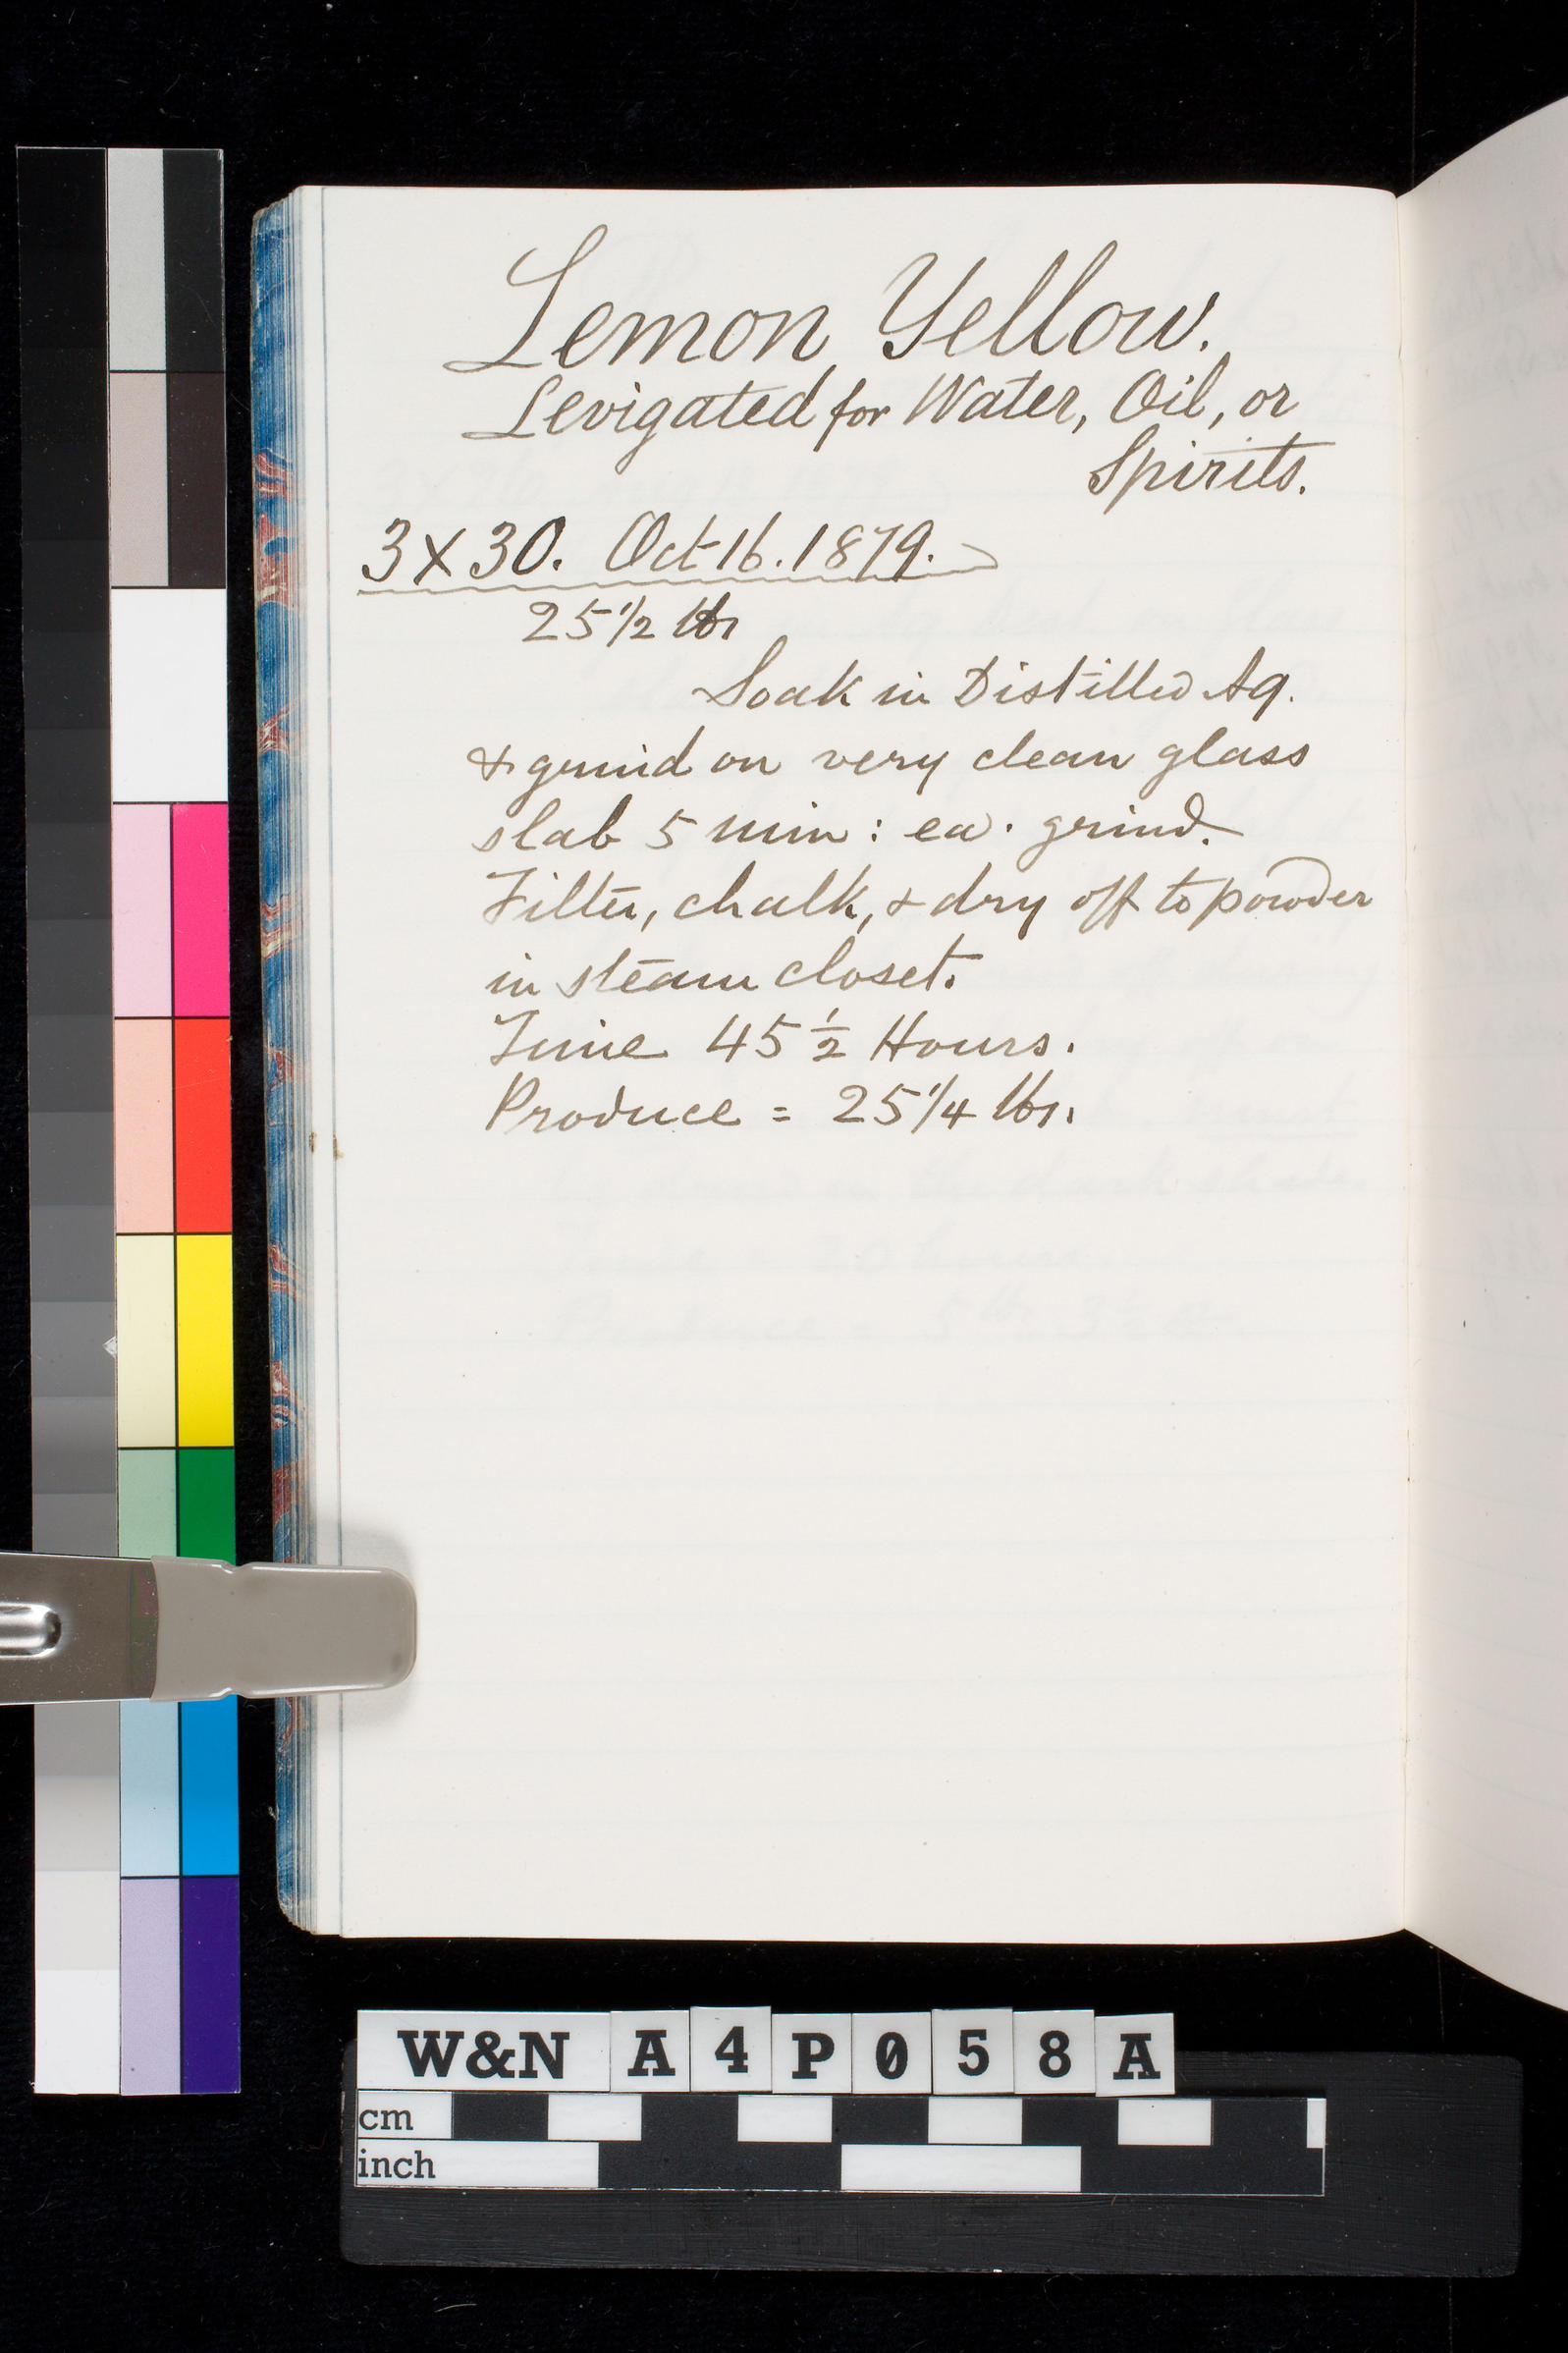 Lemon Yellow.
Levigated for Water, Oil, or
Spirits.
3 X 30. Oct 16. 1879.
25 1/2 lbs
Soak in Distilled Aq.
& grind on very clean glass
slab 5 min: ea. grind.
Filter, chalk, & dry off to powder
in steam closet.
Time 45 1/2 Hours.
Produce = 25 1/4 lbs.
W&N A4P058A
cm
inch